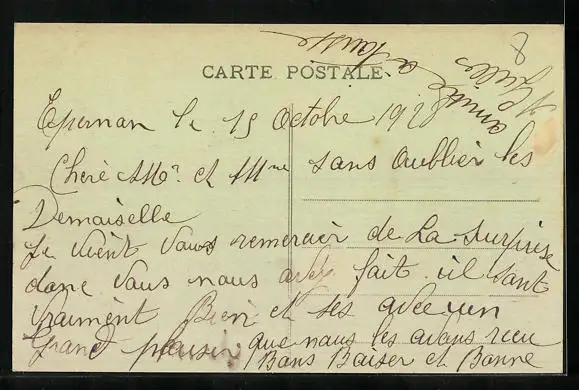 CARTE POSTALE
Epernan le 15 Octobre 1928
Cherè Mr. et Mme sans oublier les
Demaiselle
Je vient vous remercier de La Surprise
donc vous nous avez fait. il sont
vraiment Bien et ses avec un
Grand plaisir que nous les avons recu
Bons Baiser et Bonne
amitié a tousse